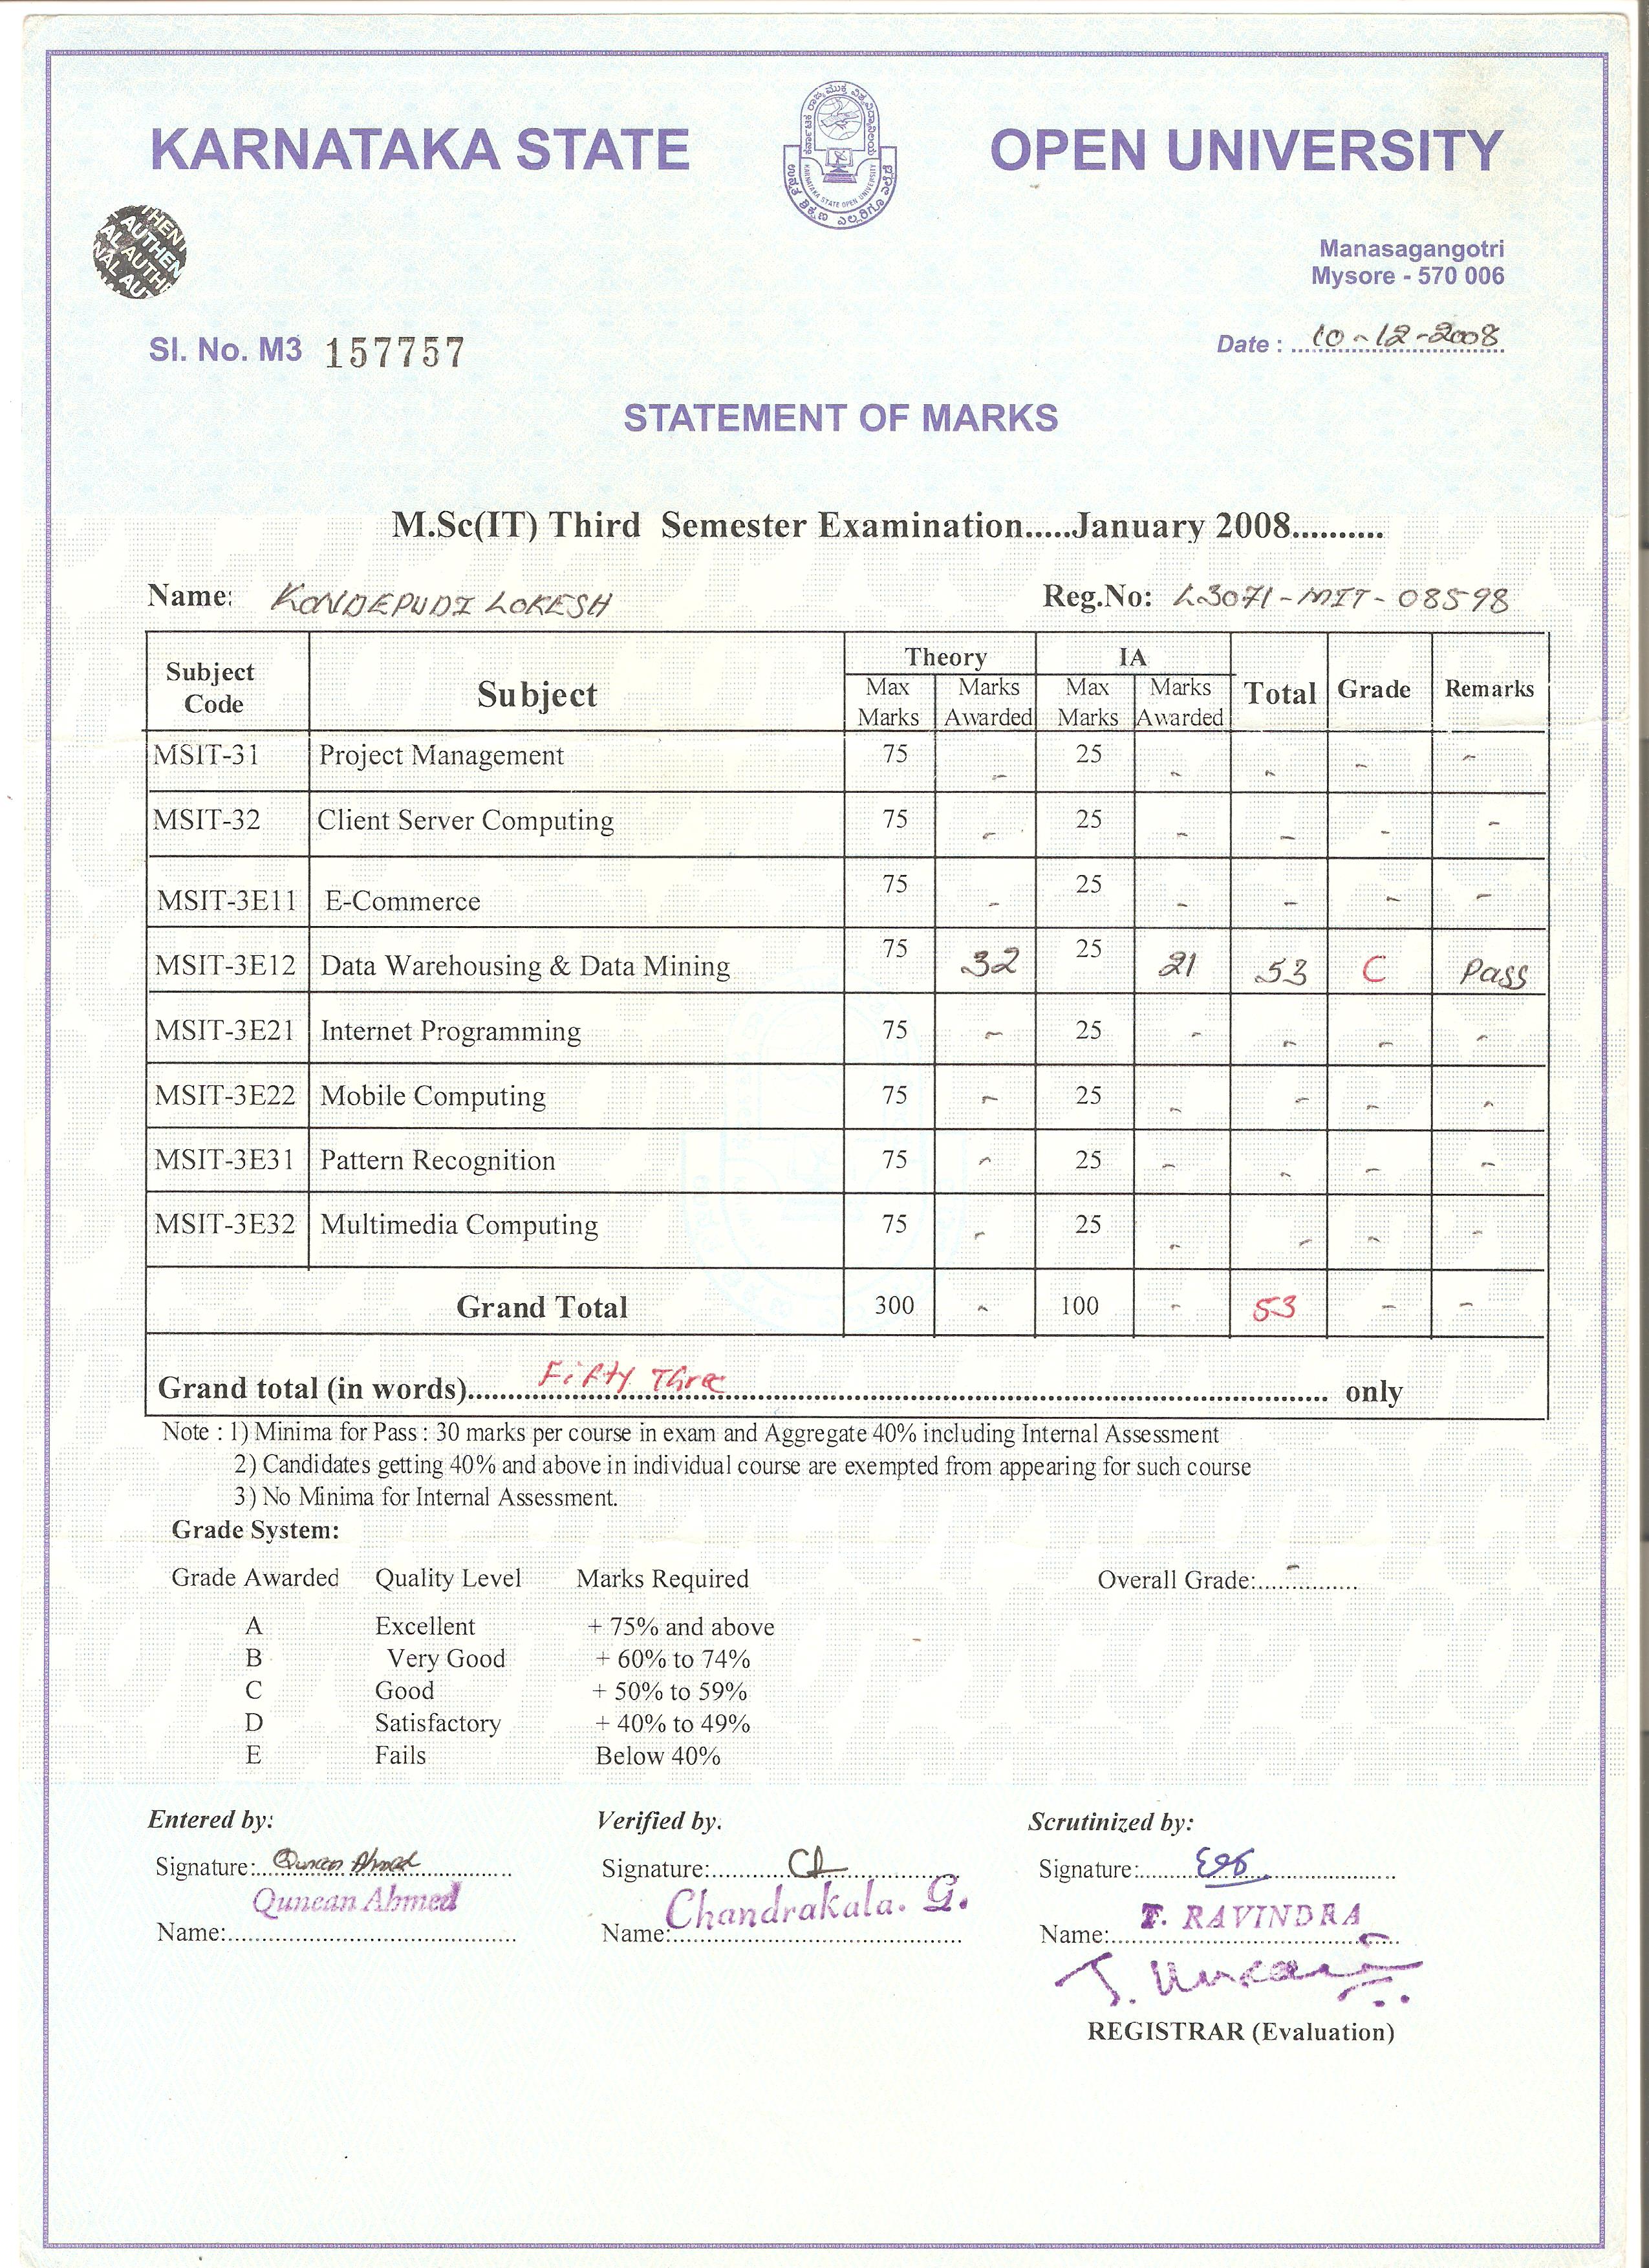 KARNATAKA STATE OPEN UNIVERSITY
ಕರ್ನಾಟಕ ರಾಜ್ಯ ಮುಕ್ತ ವಿಶ್ವವಿದ್ಯಾನಿಲಯ
KARNATAKA STATE OPEN UNIVERSITY
ಉನ್ನತ ಶಿಕ್ಷಣ ಎಲ್ಲರಿಗೂ ಎಲ್ಲೆಡೆ
Manasagangotri
Mysore - 570 006
Sl. No. M3 157757
Date : 10-12-2008
STATEMENT OF MARKS
M.Sc(IT) Third Semester Examination.....January 2008..........
Name: KONDEPUDI LOKESH Reg.No: L3071-MIT-08598
Subject Code Subject Theory Max Marks Marks Awarded IA Max Marks Marks Awarded Total Grade Remarks
MSIT-31 Project Management 75 - 25 - - - -
MSIT-32 Client Server Computing 75 - 25 - - - -
MSIT-3E11 E-Commerce 75 - 25 - - - -
MSIT-3E12 Data Warehousing & Data Mining 75 32 25 21 53 C Pass
MSIT-3E21 Internet Programming 75 - 25 - - - -
MSIT-3E22 Mobile Computing 75 - 25 - - - -
MSIT-3E31 Pattern Recognition 75 - 25 - - - -
MSIT-3E32 Multimedia Computing 75 - 25 - - - -
Grand Total 300 - 100 - 53 - -
Grand total (in words) Fifty Three only
Note : 1) Minima for Pass : 30 marks per course in exam and Aggregate 40% including Internal Assessment
2) Candidates getting 40% and above in individual course are exempted from appearing for such course
3) No Minima for Internal Assessment.
Grade System:
Grade Awarded Quality Level Marks Required Overall Grade: -
A Excellent + 75% and above
B Very Good + 60% to 74%
C Good + 50% to 59%
D Satisfactory + 40% to 49%
E Fails Below 40%
Entered by: Verified by. Scrutinized by:
Signature: Qunean Ahmed Signature: Signature:
Name: Qunean Ahmed Name: Chandrakala. G. Name: T. RAVINDRA
REGISTRAR (Evaluation)